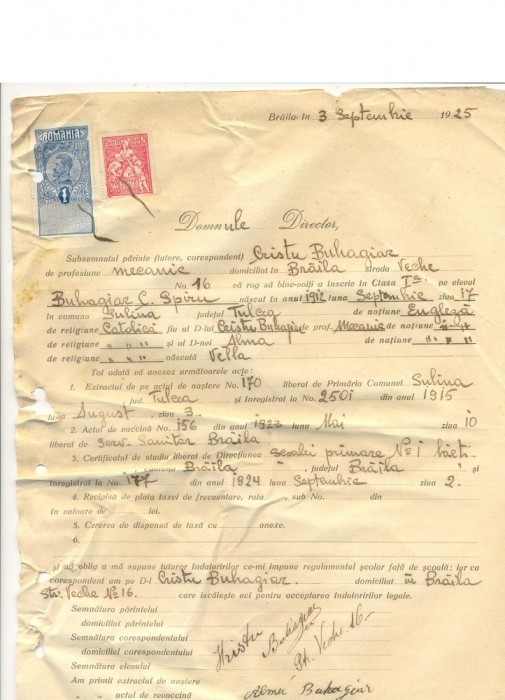 Brăila în 3 Septembrie 1925
ROMANIA
1
Domnule Director,
Subsemnatul părinte (tutore, corespondent) Cristu Buhagiar
de profesiune mecanic domiciliat în Brăila strada Veche
No. 16 vă rog să bine-voiți a înscrie în Clasa Iª pe elevul
Buhagiar C. Spiru născut în anul 1912 luna Septembrie ziua 17
în comuna Sulina județul Tulcea de națiune Engleză
de religiune Catolică fiu al D-lui Cristu Buhagiar de prof. Mecanic de națiune " "
de religiune " " " și al D-nei Alma de națiune " " "
de religiune " " " născută Vella
Tot odată vă anexez următoarele acte:
1. Extractul de pe actul de naștere No. 170 liberat de Primăria Comunei Sulina
jud. Tulcea și înregistrat la No. 2501 din anul 1915
luna August ziua 3
2. Actul de vaccină No. 156 din anul 1923 luna Mai ziua 10
liberat de Serv. Sanitar Brăila
3. Certificatul de studii liberat de Direcțiunea Școalei primare No 1 băeți
comuna Brăila județul Brăila și
înregistrat la No. 177 din anul 1924 luna Septembrie ziua 2.
4. Recipisa de plata taxei de frecventare, rata sub No. din
în valoare de lei.
5. Cererea de dispensă de taxă cu anexe.
6.
și mă oblig a mă supune tuturor îndatoririlor ce-mi impune regulamentul școlar față de școală: iar ca
corespondent am pe D-l Cristu Buhagiar. domiciliat în Brăila
Str. Veche No 16. care iscălește aci pentru acceptarea îndatoririlor legale.
Semnătura părintelui
domiciliul părintelui
Semnătura corespondentului Hristu Buhagiar
domiciliul corespondentului St. Veche 16
Semnătura elevului
Am primit extractul de naștere
" " actul de revaccină Buhagiar